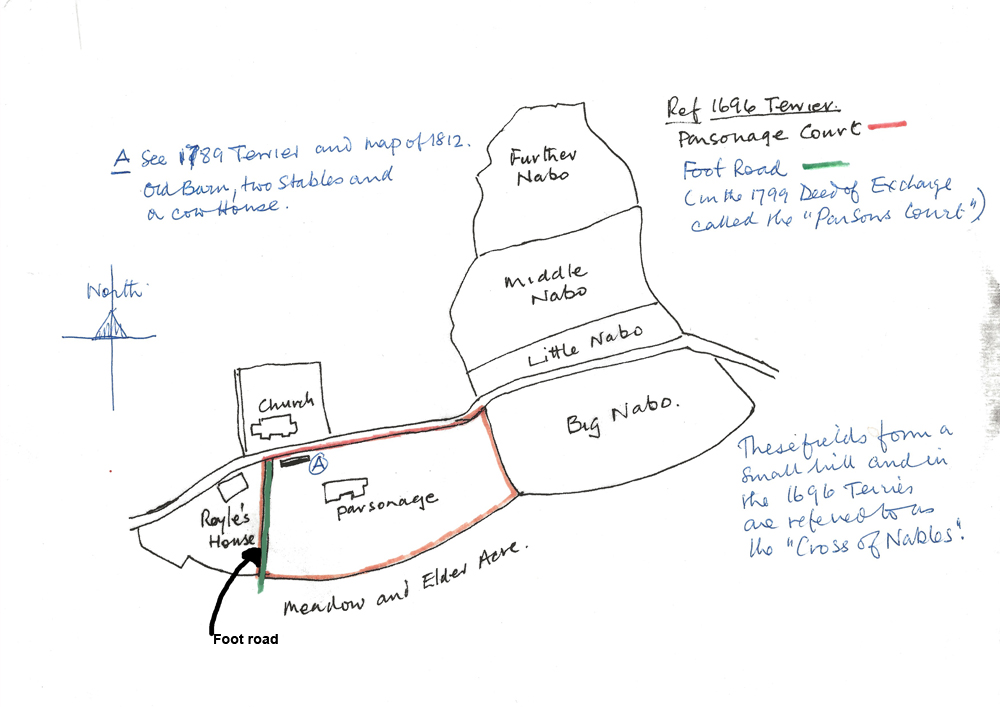 Ref 1696 Terrier.
Parsonage Court
Foot Road
(in the 1799 Deed of Exchange
called the "Parsons Court")
A See 1789 Terrier and map of 1812.
Old Barn, two Stables and
a cow House.
North
Further
Nabo
Middle
Nabo
Little Nabo
Big Nabo.
Church
A
Parsonage
Royle's
House
Meadow and Elder Acre.
Foot road
These fields form a
small hill and in
the 1696 Terrier
are referred to as
the "Cross of Nables".